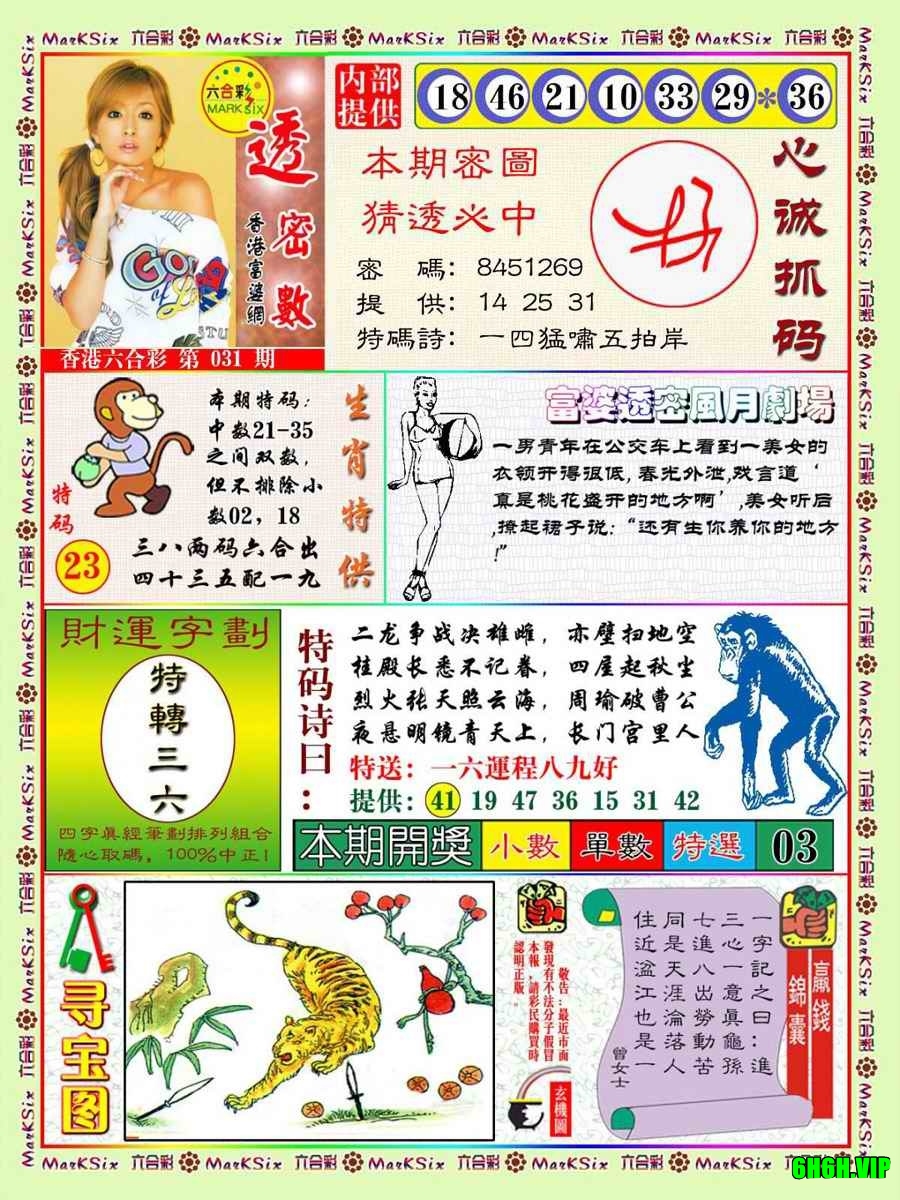 MarKSix 六合彩 MarKSix 六合彩 MarKSix 六合彩 MarKSix 六合彩 MarKSix 六合彩
六合彩
MARK Six
透密數
香港富婆網
香港六合彩 第 031 期
内部提供
18 46 21 10 33 29 * 36
本期密圖
猜透必中
密 碼: 8451269
提 供: 14 25 31
特碼詩: 一四猛嘯五拍岸
心诚抓码
本期特码:
中数21-35
之间双数,
但不排除小
数02, 18
三八两码六合出
四十三五配一九
特码
23
生肖特供
富婆透密風月劇場
一男青年在公交车上看到一美女的
衣领开得很低,春光外泄,戏言道‘
真是桃花盛开的地方啊’,美女听后
,撩起裙子说:“还有生你养你的地方
!”
財運字劃
特轉三六
四字真經筆劃排列組合
隨心取碼, 100%中正!
特码诗曰:
二龙争战决雄雌, 赤壁扫地空
桂殿长悉不记春, 四屋起秋尘
烈火张天照云海, 周瑜破曹公
夜悬明镜青天上, 长门宫里人
特送: 一六運程八九好
提供: 41 19 47 36 15 31 42
本期開獎 小數 單數 特選 03
寻宝图
敬告:最近市面
發現有不法分子假冒
本報,請彩民購買時
認明正版。
玄機圖
贏錢
錦囊
一字記之曰:進
三心一意真龜孫
七進八出勞動苦
同是天涯淪落人
住近湓江也是一
曾女士
MarKSix 六合彩 MarKSix 六合彩 MarKSix 六合彩 MarKSix 六合彩 MarKSix
6H6H.VIP